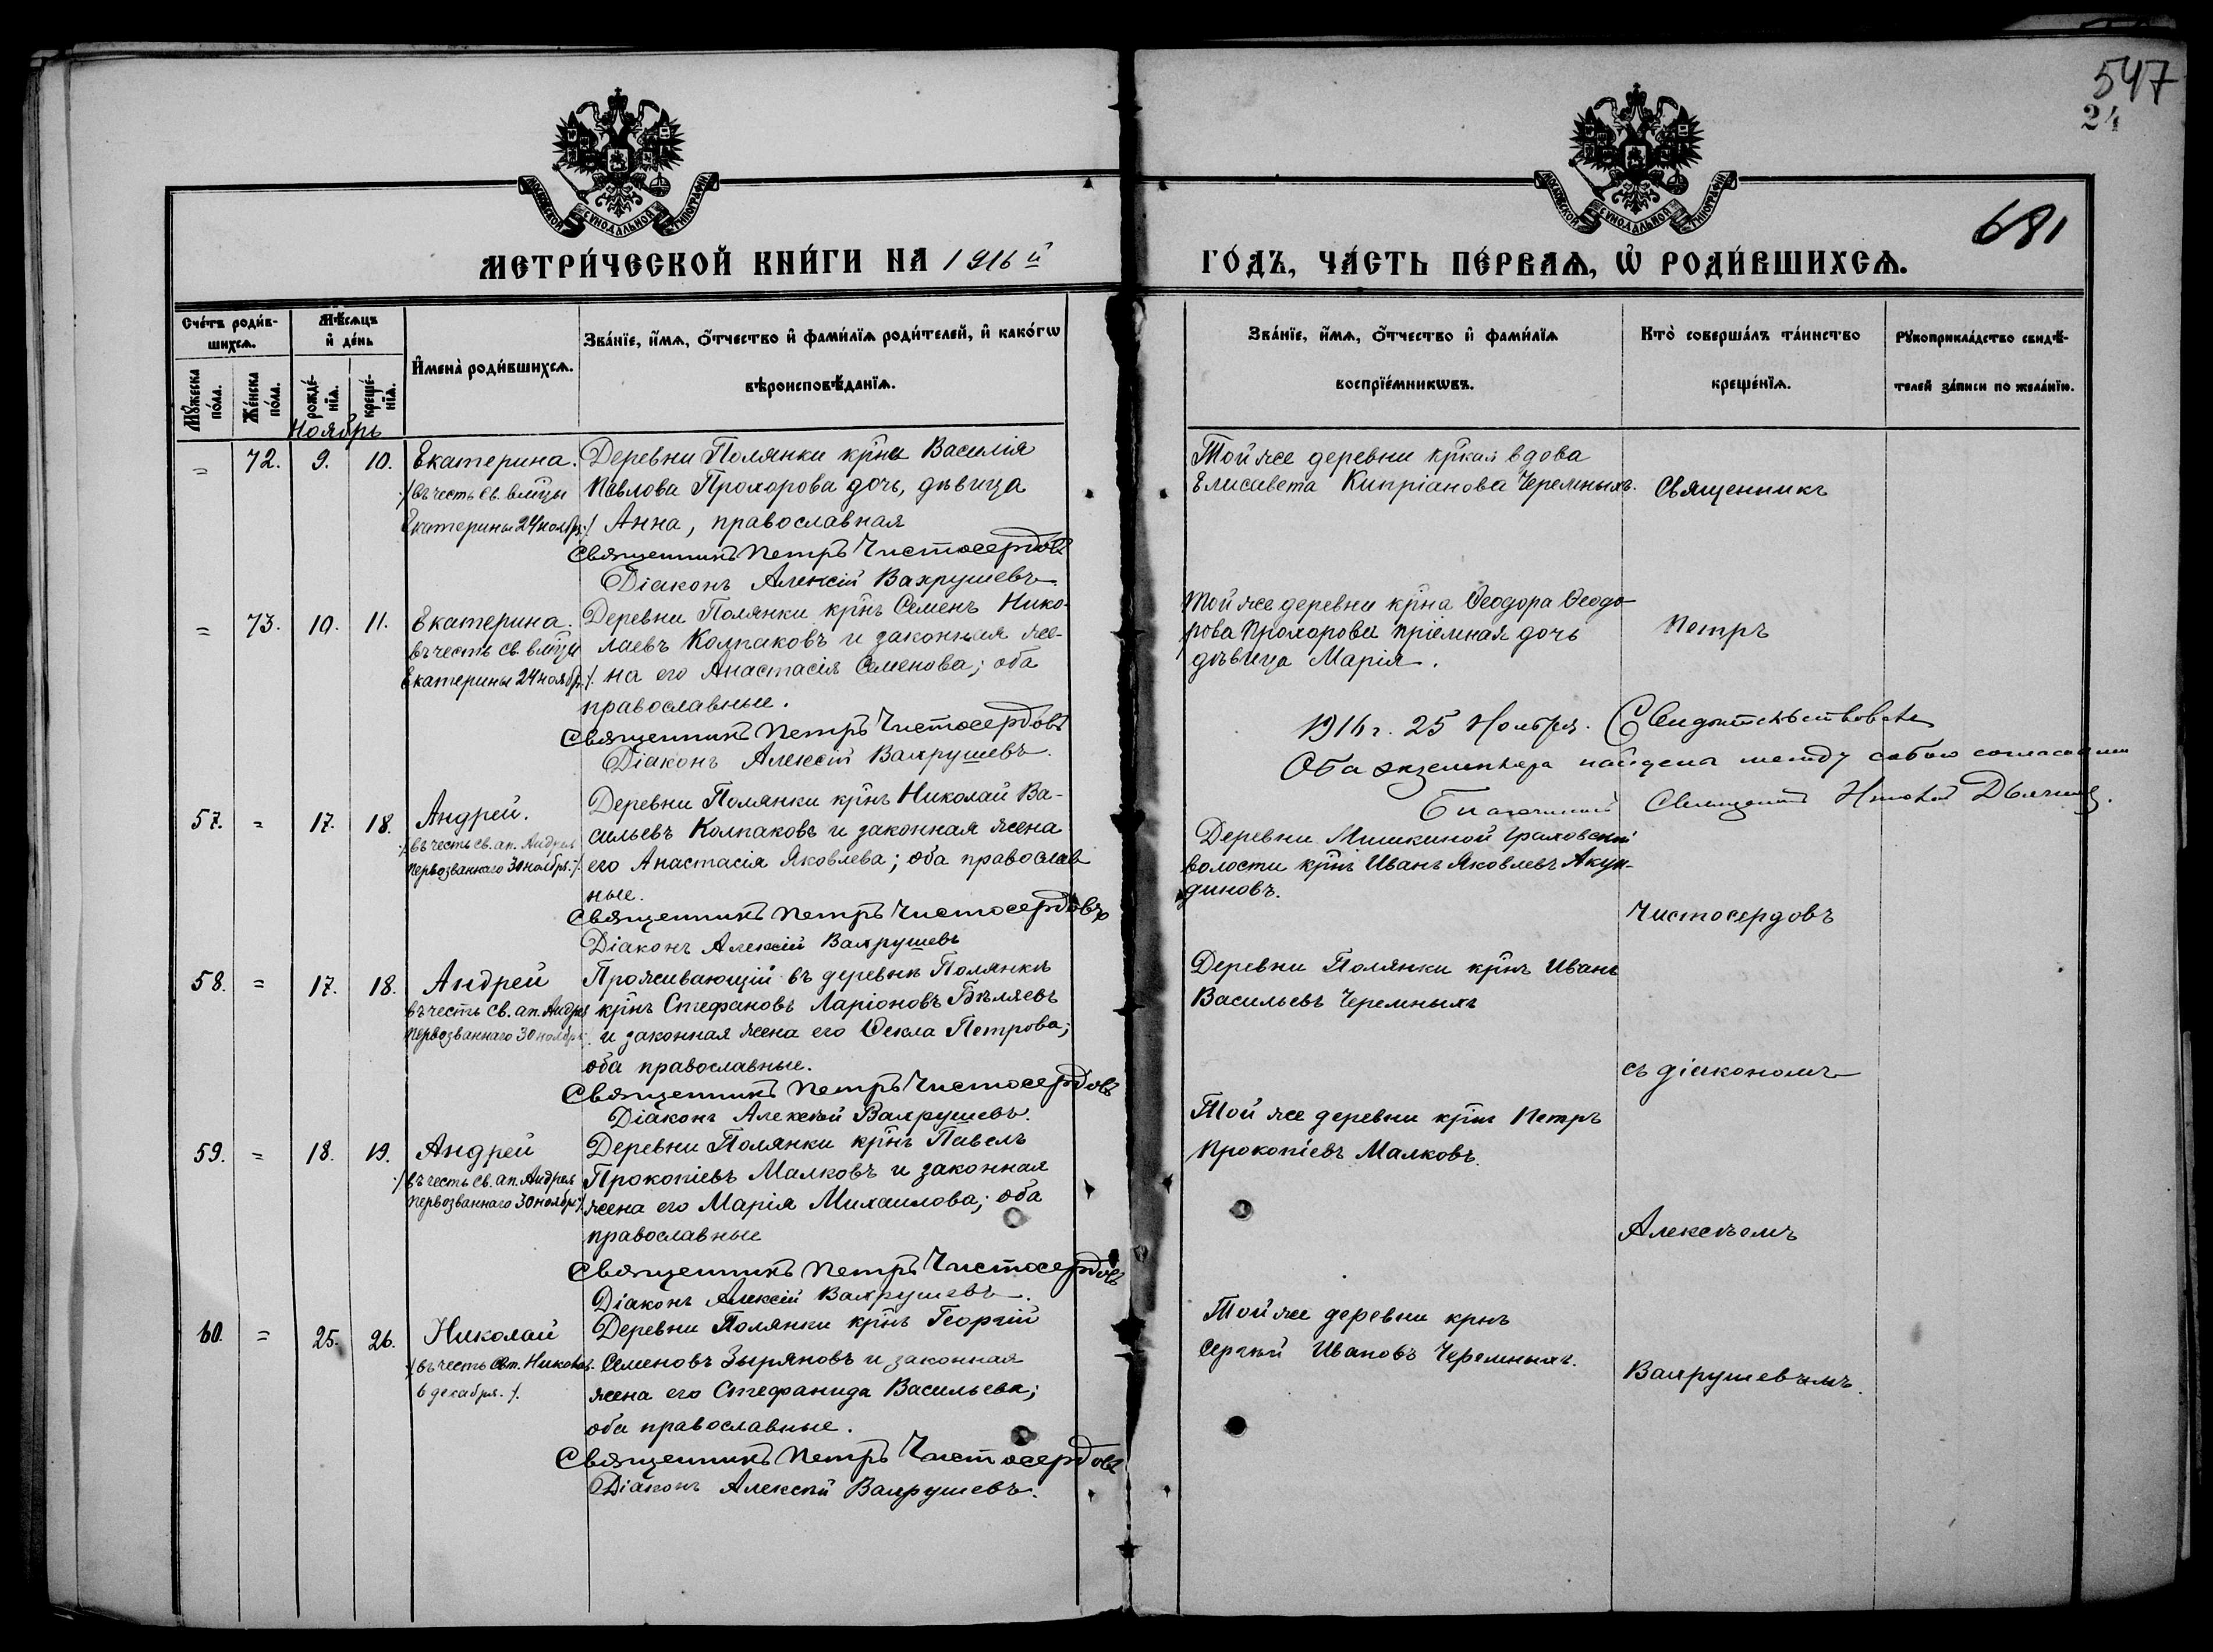 547
24
681
МОСКОВСКОЙ СѴНОДАЛЬНОЙ ТИПОГРАФІИ
МОСКОВСКОЙ СѴНОДАЛЬНОЙ ТИПОГРАФІИ
МЕТРИ́ЧЕСКОЙ КНИ́ГИ НА 1916й
ГО́ДЪ, ЧА́СТЬ ПЕ́РВАѦ, Ѡ҆ РОДИ́ВШИХСѦ.
Сче́тъ роди́в-
шихсѧ.
Мѹ́жеска по́ла.
Же́нска по́ла.
Мѣ́сѧцъ
и҆ де́нь
рожде́-
нїѧ.
креще́-
нїѧ.
И҆мена̀ роди́вшихсѧ.
Зва́нїе, и҆́мѧ, ѻ҆́тчество и҆ фами́лїѧ роди́телей, и҆ како́гѡ
вѣроисповѣ́данїѧ.
Зва́нїе, и҆́мѧ, ѻ҆́тчество и҆ фами́лїѧ
воспрїе́мникѡвъ.
Кто̀ соверша́лъ та́инство
креще́нїѧ.
Рѹкоприкла́дство свидѣ́-
телей за́писи по жела́нїю.
Ноябрь
= 72. 9. 10. Екатерина.
/въ честь св. влмцы
Екатерины 24 ноябр./
Деревни Полянки крна Василія
Павлова Прохорова дочь, дѣвица
Анна, православная
Священникъ Петръ Чистосердовъ
Діаконъ Алексій Вахрушевъ
Той же деревни кркая вдова
Елисавета Кипріанова Черемныхъ.
Священникъ
= 73. 10. 11. Екатерина.
въ честь св. влмцы
Екатерины 24 ноябр./
Деревни Полянки крнъ Семенъ Нико-
лаевъ Колпаковъ и законная же-
на его Анастасія Семенова; оба
православные.
Священникъ Петръ Чистосердовъ
Діаконъ Алексій Вахрушевъ.
Той же деревни крна Ѳеодора Ѳеодо-
рова Прохорова пріемная дочь
дѣвица Марія.
Петръ
1916 г. 25 Ноября. Свидѣтельствовалъ
Оба экземпляра найдены между собою согласными
Благочинный Священникъ
57. = 17. 18. Андрей.
/въ честь св. ап. Андрея
Первозваннаго 30 ноября./
Деревни Полянки крнъ Николай Ва-
сильевъ Колпаковъ и законная жена
его Анастасія Яковлева; оба православ
ные.
Священникъ Петръ Чистосердовъ
Діаконъ Алексій Вахрушевъ
Деревни Мишкиной Граховской
волости крнъ Иванъ Яковлевъ Акун-
диновъ.
Чистосердовъ
58. = 17. 18. Андрей
въ честь св. ап. Андрея
Первозваннаго 30 ноябр.
Проживающій въ деревнѣ Полянкѣ
крнъ Стефановъ Ларіоновъ Бѣляевъ
и законная жена его Ѳекла Петрова;
оба православные.
Священникъ Петръ Чистосердовъ
Діаконъ Алексѣй Вахрушевъ.
Деревни Полянки крнъ Иванъ
Васильевъ Черемныхъ
съ діакономъ
59. = 18. 19. Андрей
/въ честь св. ап. Андрея
Первозваннаго 30 ноябр./
Деревни Полянки крнъ Павелъ
Прокопіевъ Малковъ и законная
жена его Марія Михаилова; оба
православные
Священникъ Петръ Чистосердовъ
Діаконъ Алексій Вахрушевъ.
Той же деревни крнъ Петръ
Прокопіевъ Малковъ.
Алексѣемъ
60. = 25. 26. Николай
/въ честь Свт. Николая
6 декабря./
Деревни Полянки крнъ Георгій
Семеновъ Зыряновъ и законная
жена его Стефанида Васильева;
оба православные.
Священникъ Петръ Чистосердовъ
Діаконъ Алексѣй Вахрушевъ.
Той же деревни крнъ
Сергѣй Ивановъ Черемныхъ.
Вахрушевымъ.